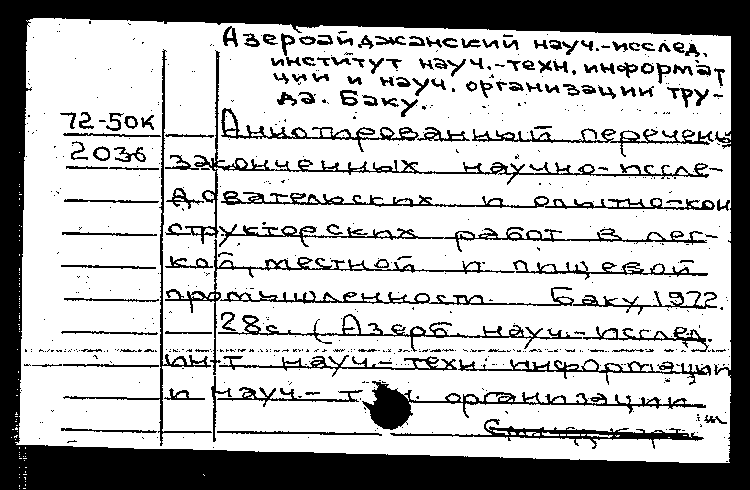 Азербайджанский науч.-исслед.
институт науч.-техн. информат
ции и науч. организации тру-
да. Баку.
72-50к Аннотированный перечень
2036 законченных научно-иссле-
довательских и опытно-кон
структорских работ в лег-
кой, местной и пищевой
промышленности. Баку, 1972.
28с. (Азерб науч.-исслед.
ин-т науч.-техн. информации
и науч.- т н. организации